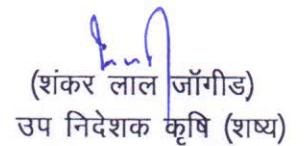 (शंकर लाल जॉगीड)
उप निदेशक कृषि (शष्य)